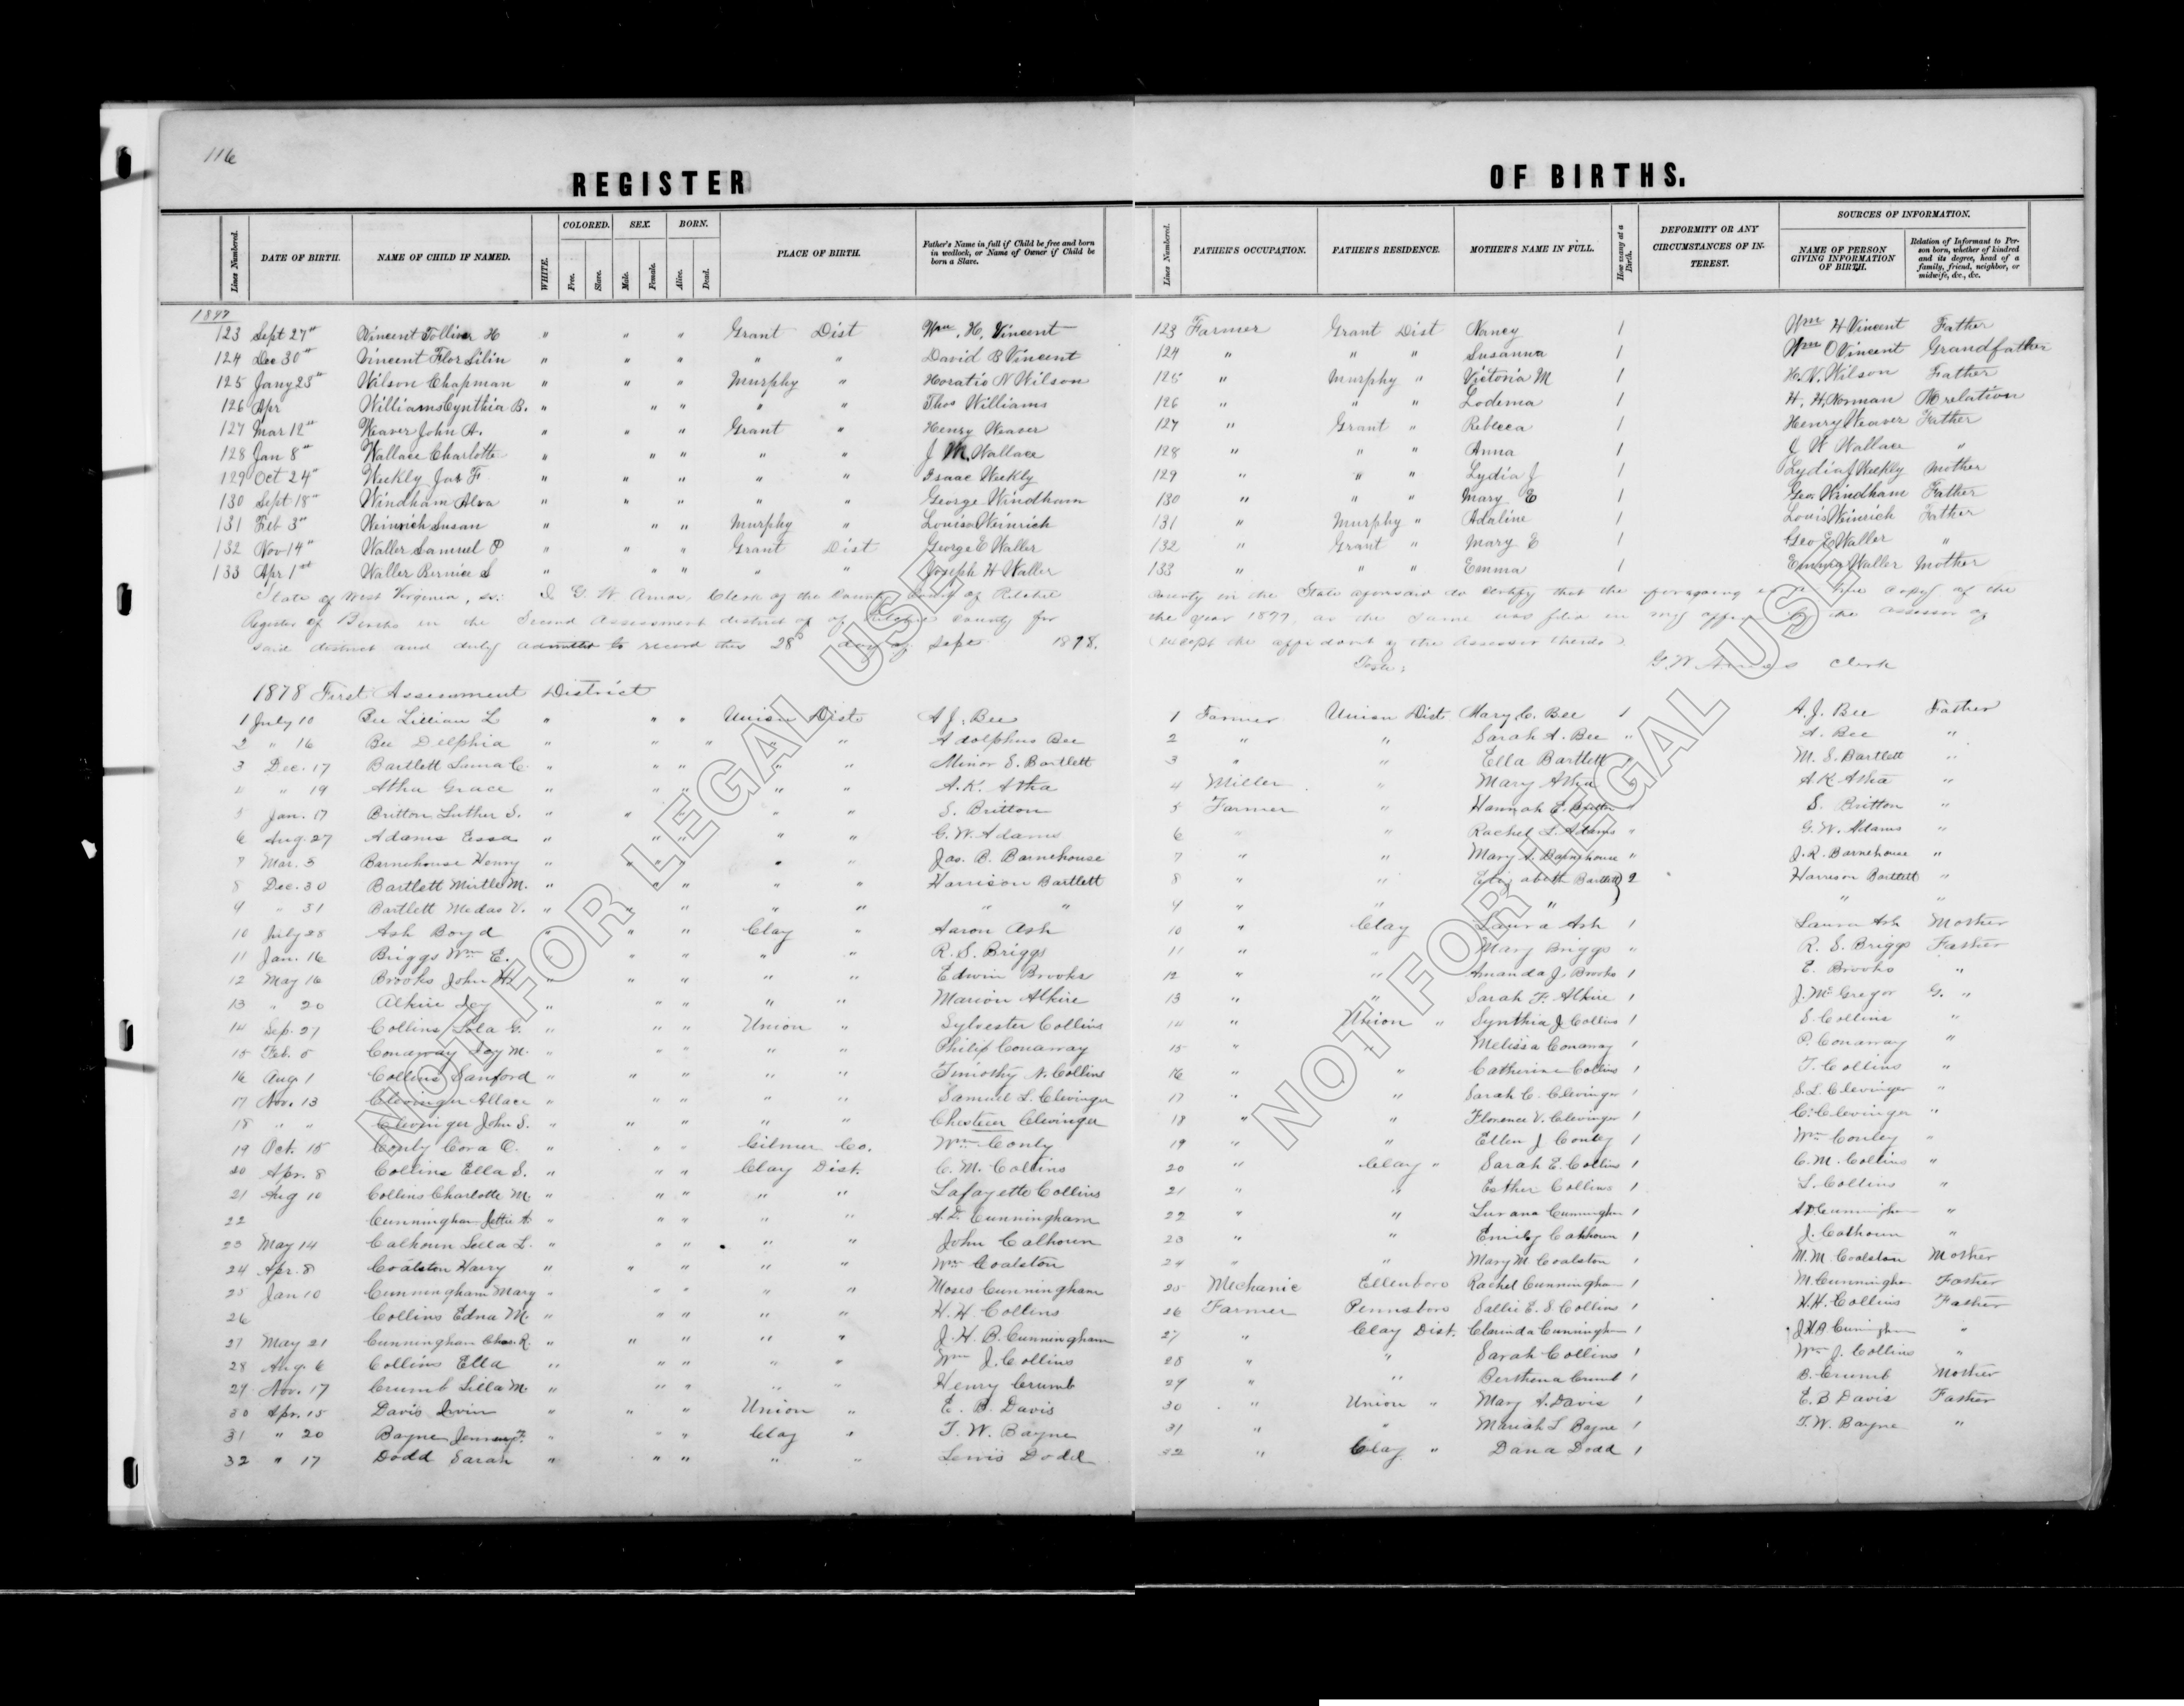 116
REGISTER OF BIRTHS.
Lines Numbered. DATE OF BIRTH. NAME OF CHILD IF NAMED. WHITE. COLORED. Free. Slave. SEX. Male. Female. BORN. Alive. Dead. PLACE OF BIRTH. Father's Name in full if Child be free and born in wedlock, or Name of Owner if Child be born a Slave. Lines Numbered. FATHER'S OCCUPATION. FATHER'S RESIDENCE. MOTHER'S NAME IN FULL. How many at a Birth. DEFORMITY OR ANY CIRCUMSTANCES OF INTEREST. SOURCES OF INFORMATION. NAME OF PERSON GIVING INFORMATION OF BIRTH. Relation of Informant to Person born, whether of kindred and its degree, head of a family, friend, neighbor, or midwife, &c., &c.
1877
123 Sept 27" Vincent Tolliver H " " " Grant Dist Wm. H. Vincent 123 Farmer Grant Dist Nancy 1 Wm H Vincent Father
124 Dec 30" Vincent Flor " " " " " David B Vincent 124 " " " Susanna 1 Wm O Vincent Grandfather
125 Jany 23" Wilson Chapman " " " Murphy " Horatio N Wilson 125 " Murphy " Victoria M 1 H. N. Wilson Father
126 Apr Williams Cynthia B. " " " " " Thos Williams 126 " " " Lodema 1 H. H. Norman No relation
127 Mar 12" Weaver John A. " " " Grant " Henry Weaver 127 " Grant " Rebecca 1 Henry Weaver Father
128 Jan 8" Wallace Charlotte " " " " " J M. Wallace 128 " " " Anna 1 J W Wallace "
129 Oct 24" Weekly Jas F " " " " " Isaac Weekly 129 " " " Lydia J 1 Lydia J Weekly Mother
130 Sept 18" Windham Alva " " " " " George Windham 130 " " " Mary E 1 Geo. Windham Father
131 Feb 3" Weinrich Susan " " " Murphy " Louis Weinrich 131 " Murphy " Adaline 1 Louis Weinrich Father
132 Nov 14" Waller Samuel P " " " Grant Dist George E Waller 132 " Grant " Mary E 1 Geo E Waller "
133 Apr 1st Waller Bernice S " " " " " Joseph H Waller 133 " " " Emma 1 Emma Waller Mother
State of West Virginia, ss: I G. W. Amos, Clerk of the County Court of Ritchie County in the State aforesaid do certify that the foregoing is a true copy of the
Register of Births in the Second Assessment district of Ritchie County for the year 1877, as the same was filed in my office by the assessor of
said district and duly admitted to record this 28th day of Sept 1878. (except the affidavit of the Assessor thereto)
Teste: G. W. Amos Clerk
1878 First Assessment District
1 July 10 Bee Lillian L " " " Union Dist A J. Bee 1 Farmer Union Dist. Mary C. Bee 1 A. J. Bee Father
2 " 16 Bee Delphia " " " " " Adolphus Bee 2 " " Sarah A. Bee " A. Bee "
3 Dec. 17 Bartlett Laura C. " " " " " Minor S. Bartlett 3 " " Ella Bartlett " M. S. Bartlett "
4 " 19 Atha Grace " " " " " A. K. Atha 4 Miller " Mary Atha " A K Atha "
5 Jan. 17 Britton Luther S. " " " " " S. Britton 5 Farmer " Hannah E. Britton " S. Britton "
6 Aug. 27 Adams Essa " " " " " G. W. Adams 6 " " Rachel L. Adams " G. W. Adams "
7 Mar. 3 Barnehouse Henry " " " " " Jas. B. Barnehouse 7 " " Mary A. Barnehouse " J. R. Barnehouse "
8 Dec. 30 Bartlett Mirtle M. " " " " " Harrison Bartlett 8 " " Elizabeth Bartlett } 2 Harrison Bartlett "
9 " 31 Bartlett Medas V. " " " " " " " 9 " " " " "
10 July 28 Ash Boyd " " " Clay " Aaron Ash 10 " Clay Laura Ash 1 Laura Ash Mother
11 Jan. 16 Briggs Wm E. " " " " " R. S. Briggs 11 " " Mary Briggs " R. S. Briggs Father
12 May 16 Brooks John H " " " " " Edwin Brooks 12 " " Amanda J. Brooks 1 E. Brooks "
13 " 20 Alkire Icy " " " " Marion Alkire 13 " " Sarah F. Alkire 1 J. McGregor G. "
14 Sep. 21 Collins Lola G. " " " Union " Sylvester Collins 14 " Union " Synthia J Collins 1 S. Collins "
15 Feb. 5 Conaway Icy M. " " " " " Philip Conaway 15 " " Melissa Conaway 1 P. Conaway "
16 Aug. 1 Collins Sanford " " " " " Timothy N. Collins 16 " " Catherine Collins 1 T. Collins "
17 Nov. 13 Clevinger Allace " " " " " Samuel L. Clevinger 17 " " Sarah C. Clevinger 1 S. L. Clevinger "
18 " " Clevinger John S. " " " " " Clevinger 18 " " Florence V. Clevinger 1 C. Clevinger "
19 Oct. 15 Conly Cora O. " " " Gilmer Co. Wm Conly 19 " " Ellen J Conley 1 Wm Conley "
20 Apr. 8 Collins Ella S. " " " Clay Dist. C. M. Collins 20 " Clay " Sarah E. Collins 1 C. M. Collins "
21 Aug 10 Collins Charlotte M. " " " " " Lafayette Collins 21 " " Esther Collins 1 L. Collins "
22 Cunningham " " " " " A. D. Cunningham 22 " " Lurana Cunningham 1 A D Cunningham "
23 May 14 Calhoun Lella L. " " " " " John Calhoun 23 " " Emily Calhoun 1 J. Calhoun "
24 Apr. 8 Coalston Harry " " " " " Wm Coalston 24 " " Mary M. Coalston 1 M. M. Coalston Mother
25 Jan 10 Cunningham Mary " " " " " Moses Cunningham 25 Mechanic Ellenboro Rachel Cunningham 1 M. Cunningham Father
26 Collins Edna M. " " " " " H. H. Collins 26 Farmer Pennsboro Sallie E. S Collins 1 H. H. Collins Father
27 May 21 Cunningham Chas. R. " " " " " J. H. B. Cunningham 27 " Clay Dist. Clarinda Cunningham 1 J H B Cunningham "
28 Aug. 6 Collins Ella " " " " " Wm J. Collins 28 " " Sarah Collins 1 Wm J. Collins "
29 Nov. 17 Crumb Lilla M. " " " " " Henry Crumb 29 " " Berthena Crumb 1 B. Crumb Mother
30 Apr. 15 Davis Irvin " " " Union " E. B. Davis 30 " Union " Mary A. Davis 1 E. B Davis Father
31 " 20 Bayne F. " " " Clay " T. W. Bayne 31 " " Mariah L Bayne 1 T. W. Bayne "
32 " 17 Dodd Sarah " " " " " Lewis Dodd 32 " Clay " Dana Dodd 1
NOT FOR LEGAL USE
NOT FOR LEGAL USE